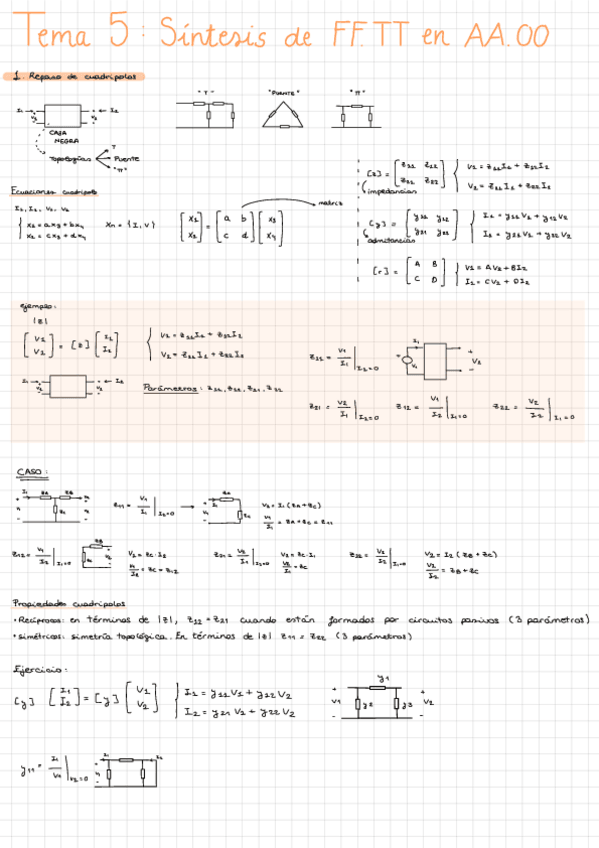 Tema 5: Síntesis de FF.TT en AA.OO
1. Repaso de cuadripolos
"T" "PUENTE" "π"
I1 V1 V2 I2
CAJA
NEGRA
Topologías
T
Puente
"π"
Ecuaciones cuadripolo
I1, I2, V1, V2
x1 = ax3 + bx4
x2 = cx3 + dx4
xn = {I, V}
[x1 x2] = [a b c d] [x3 x4]
matriz
[z] = [z11 z12 z21 z22] { V1 = z11I1 + z12I2
V2 = z21I1 + z22I2
impedancias
[y] = [y11 y12 y21 y22] { I1 = y11V1 + y12V2
I2 = y21V1 + y22V2
admitancias
[r] = [A B C D] { V1 = AV2 + BI2
I1 = CV2 + DI2
ejemplo:
|z|
[V1 V2] = [z] [I1 I2] { V1 = z11I1 + z12I2
V2 = z21I1 + z22I2
z11 = V1/I1 |I2=0
I1 V1 V2
I1 I2
Parámetros: z11, z12, z21, z22
z21 = V2/I1 |I2=0 z12 = V1/I2 |I1=0 z22 = V2/I2 |I1=0
CASO:
I1 zA zB zC
z11 = V1/I1 |I2=0 → zA zC
V1 = I1 (zA + zC)
V1/I1 = zA + zC = z11
z12 = V1/I2 |I1=0 zB zC V1 = zC · I2
V1/I2 = zC = z12
z21 = V2/I1 |I2=0 V2 = zC · I1
V2/I1 = zC
z22 = V2/I2 |I1=0 V2 = I2 (zB + zC)
V2/I2 = zB + zC
Propiedades cuadripolos
• Recíprocos: en términos de |z|, z12 = z21 cuando están formados por circuitos pasivos (3 parámetros)
• simétricos: simetría topológica. En términos de |z| z11 = z22 (3 parámetros)
Ejercicio:
[y] [I1 I2] = [y] [V1 V2] { I1 = y11V1 + y12V2
I2 = y21V1 + y22V2
y1
V1 y2 y3 V2
y11 = I1/V1 |V2=0